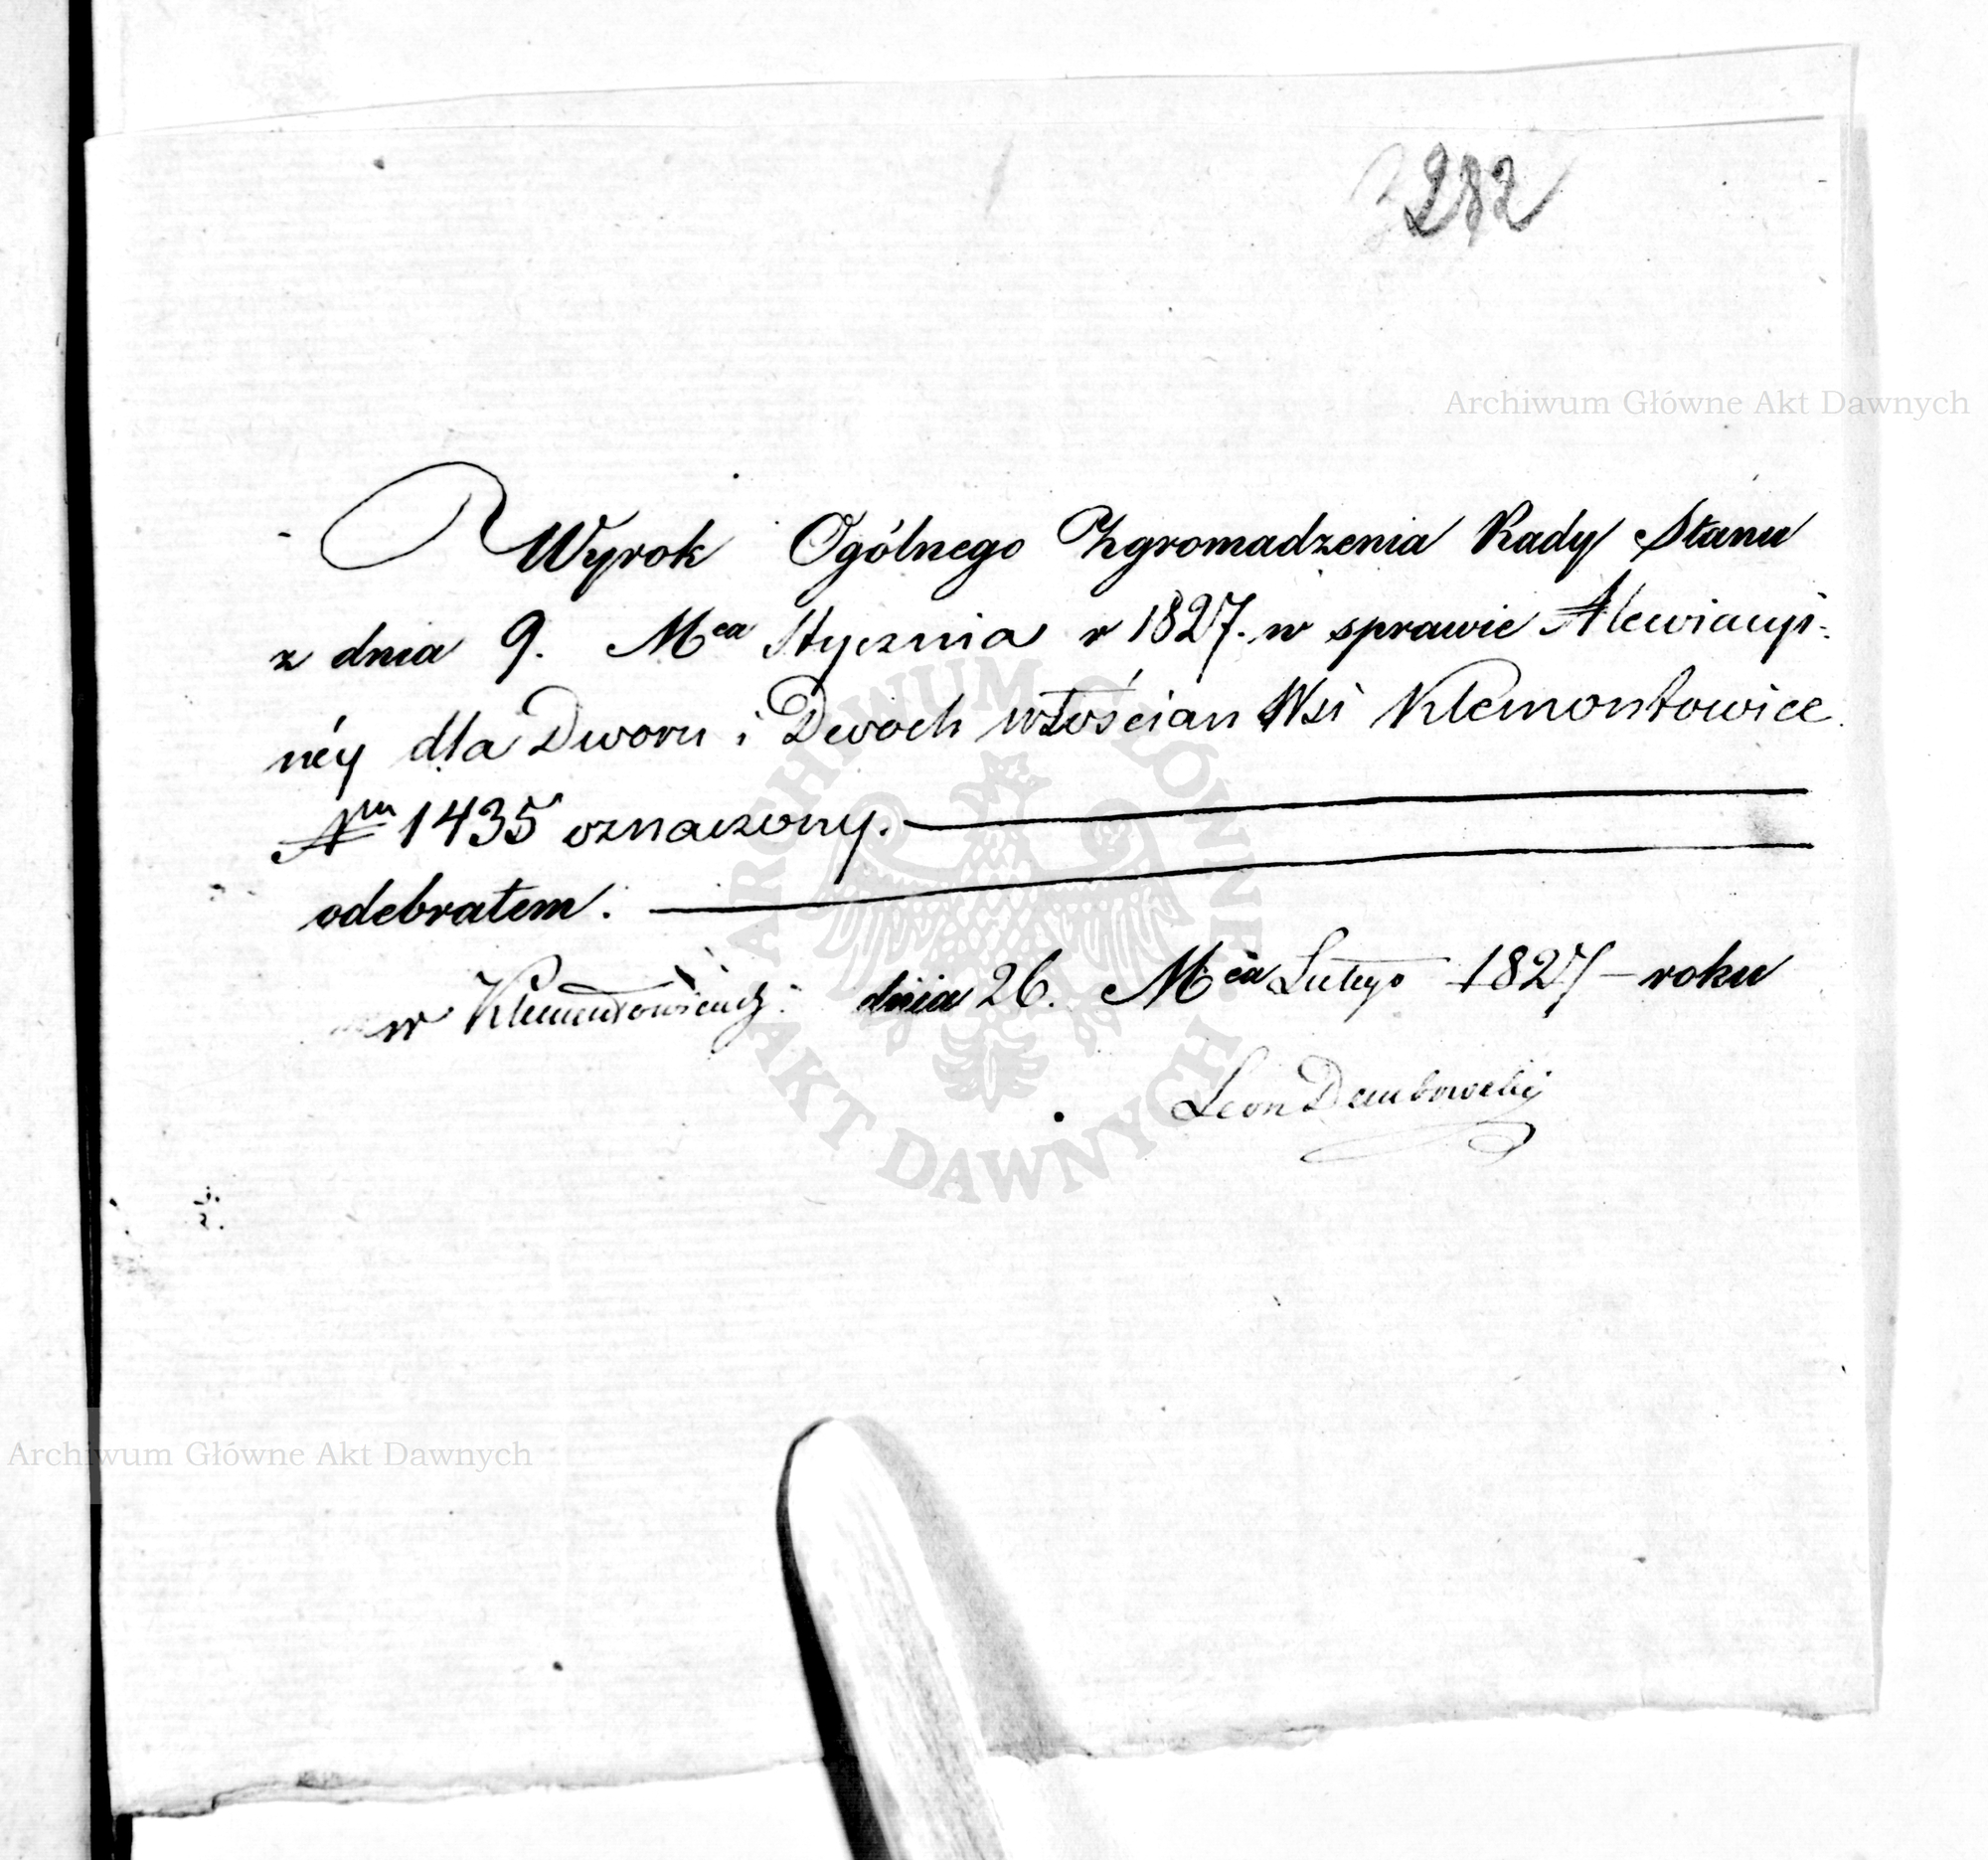 282
Archiwum Główne Akt Dawnych
Wyrok Ogólnego Zgromadzenia Rady Stanu
z dnia 9. Mca Stycznia r 1827. w sprawie Alewiacyi-
néy dla Dworu i Dwoch włościan Wsi Klemontowice
Nm 1435 oznaczony.
odebrałem.
w Klementowicach: dnia 26. Mca Lutego 1827 – roku
Leon Dembowski
ARCHIWUM GŁÓWNE AKT DAWNYCH
Archiwum Główne Akt Dawnych